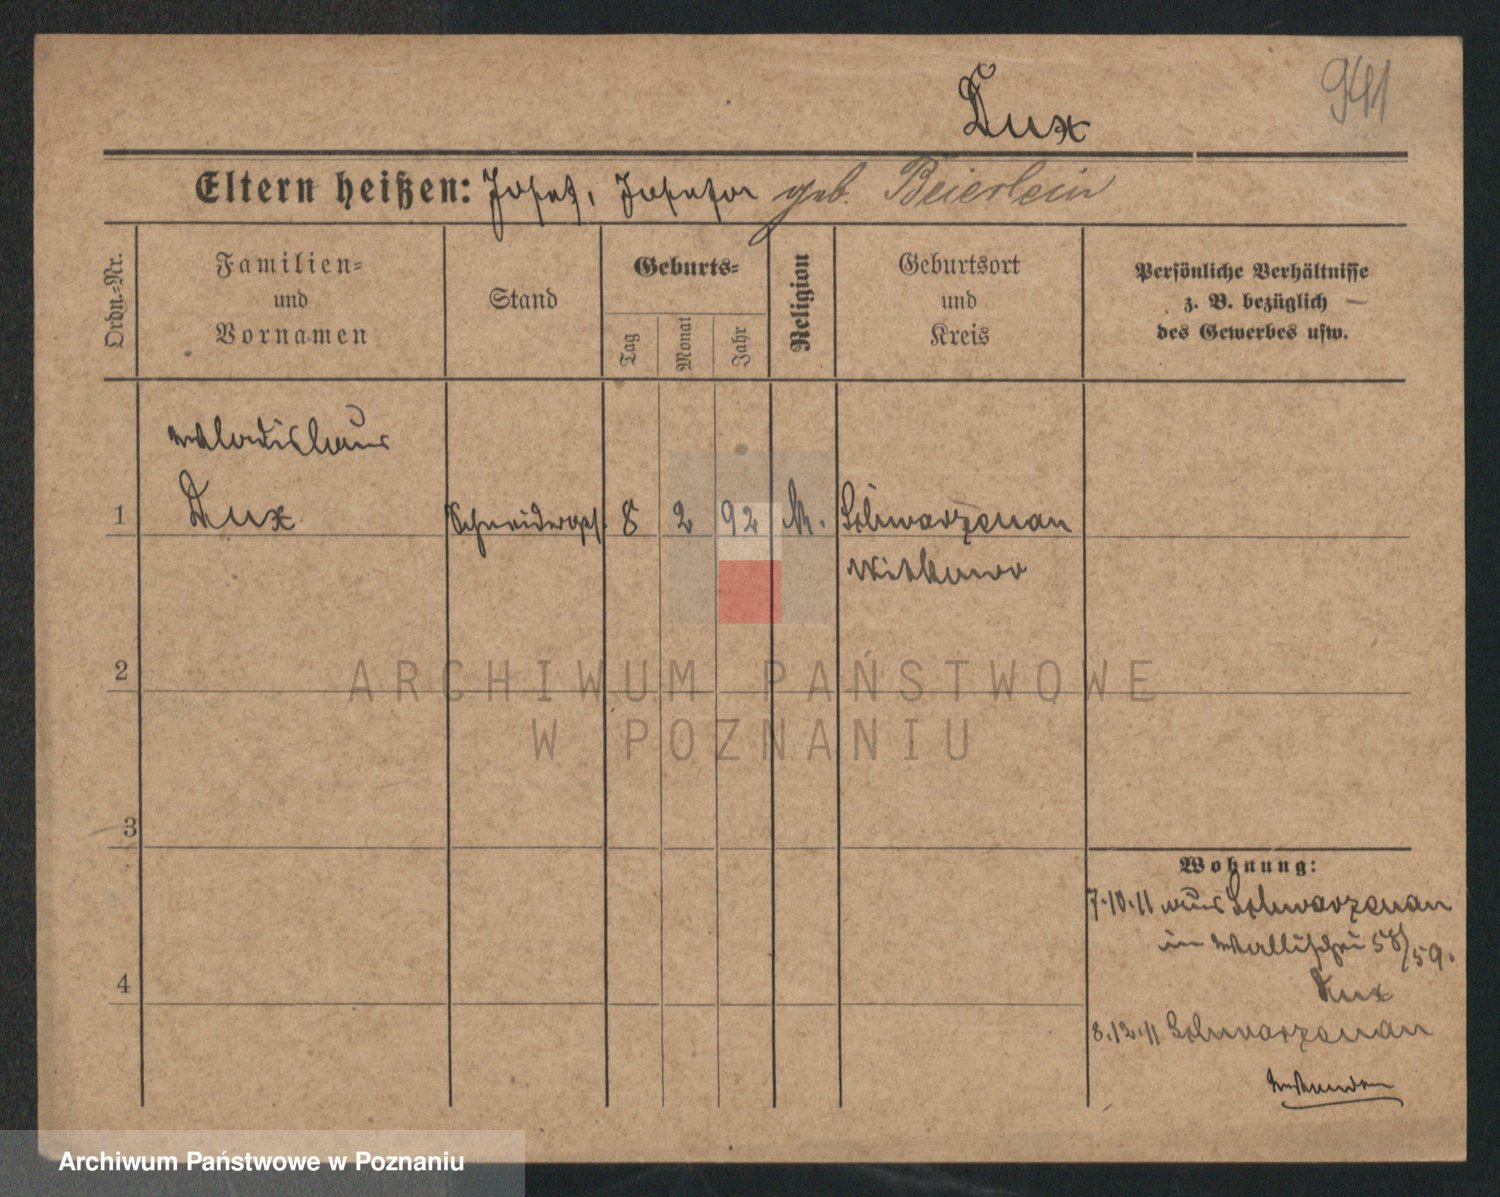 Dux
941
Eltern heißen: Josef, Josefa geb. Beierlein
Ordn.-Nr.
Familien-
und
Vornamen
Stand
Geburts-
Tag
Monat
Jahr
Religion
Geburtsort
und
Kreis
Persönliche Verhältnisse
z. B. bezüglich
des Gewerbes usw.
Wladislaus
1 Dux Schneiderges. 8 2 92 k. Schwarzenau
Witkowo
2
ARCHIWUM PAŃSTWOWE
W POZNANIU
3
Wohnung:
7.10.11 aus Schwarzenau
in Wallischei 58/59.
4
Dux
8.12.11 Schwarzenau
Archiwum Państwowe w Poznaniu